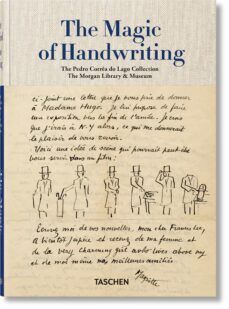 The Magic of
Handwriting
The Pedro Corrêa do Lago Collection
The Morgan Library & Museum
ci-joint une lettre que je vous prie de donner
à Madame Hugo. Je lui propose de faire
une exposition vers la fin de l'année. Je crois
que j'irais à N.Y alors, ce qui me donnerait
le plaisir de vous revoir.
Voici une idée de scène qui pourrait peut-être
vous servir dans un film:
moi de vos nouvelles, mon cher Francis Lee,
A bientôt j'espère et recevez de ma femme et
de la very charming girl who lives above my
et de moi même nos meilleures amitiés.
Magritte
TASCHEN